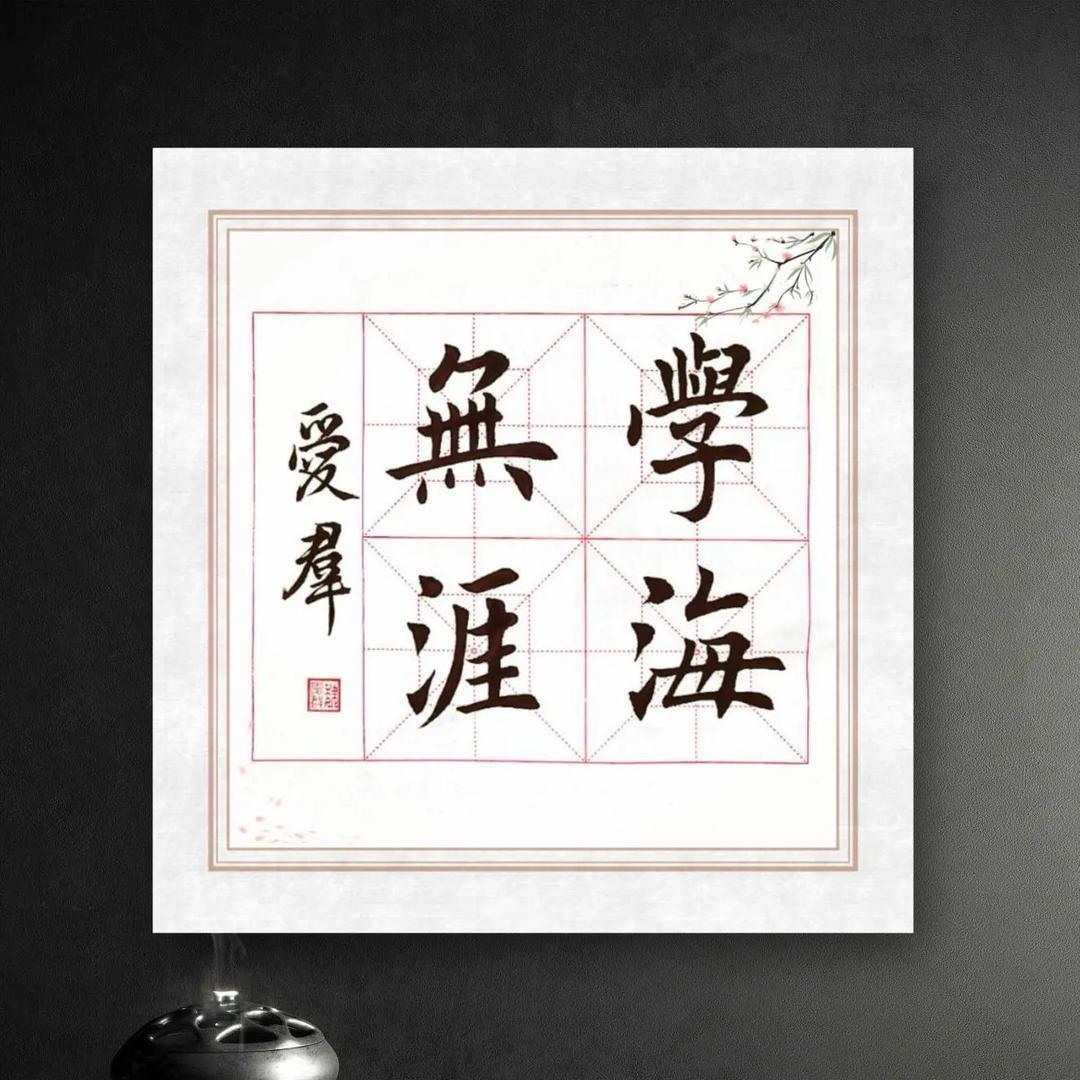 學海
無涯
愛羣